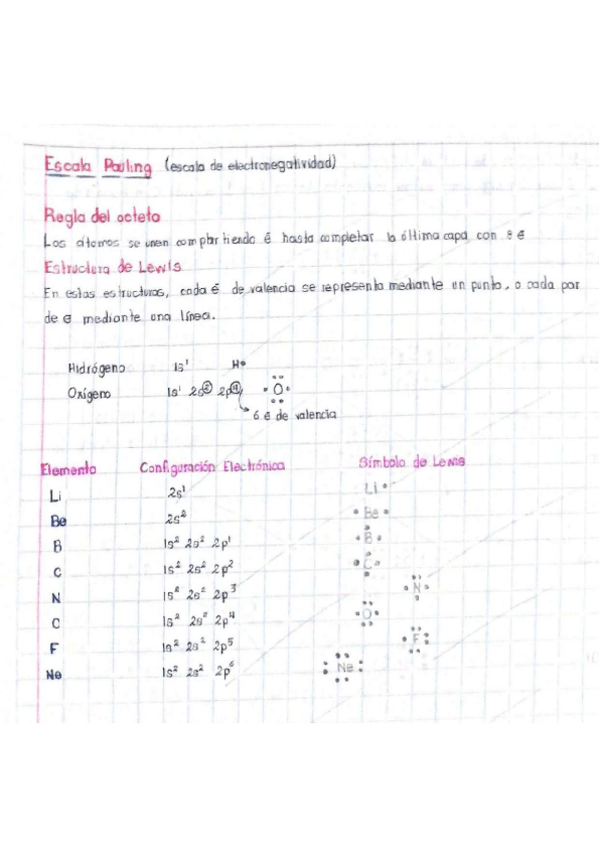 Escala Pauling (escala de electronegatividad)
Regla del octeto
Los átomos se unen compartiendo ē hasta completar la última capa con 8 ē
Estructura de Lewis
En estas estructuras, cada ē de valencia se representa mediante un punto, o cada par
de ē mediante una línea.
Hidrógeno 1s¹ H•
Oxígeno 1s¹ 2s② 2p④ O
6 ē de valencia
Elemento Configuración Electrónica Símbolo de Lewis
Li 2s¹ Li
Be 2s² Be
B 1s² 2s² 2p¹ B
C 1s² 2s² 2p² C
N 1s² 2s² 2p³ N
C 1s² 2s² 2p⁴ O
F 1s² 2s² 2p⁵ F
Ne 1s² 2s² 2p⁶ Ne